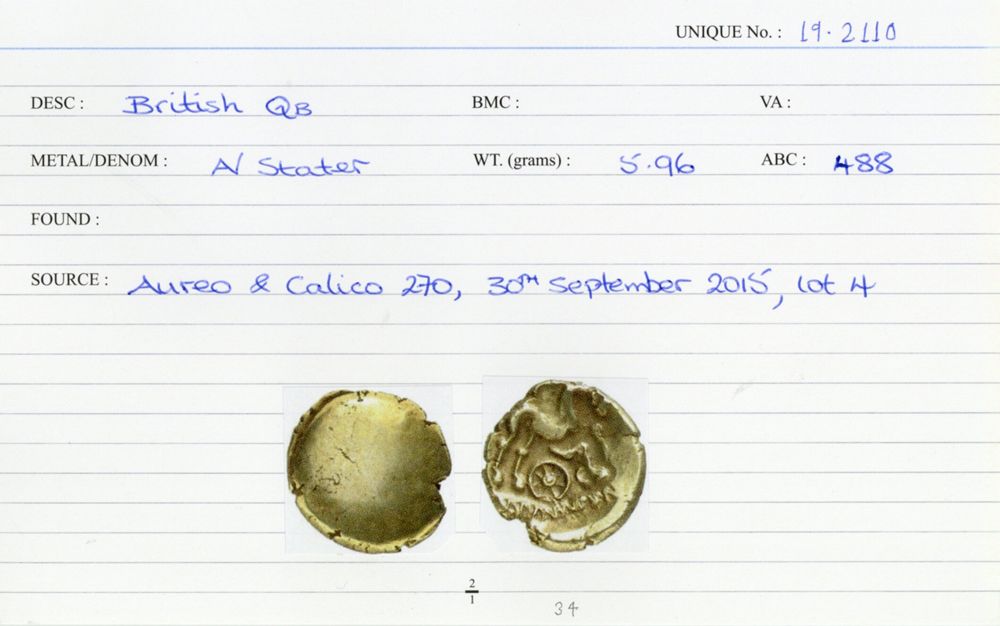 UNIQUE No. : 19.2110
DESC : British QB BMC : VA :
METAL/DENOM : A/ Stater WT. (grams) : 5.96 ABC : 488
FOUND :
SOURCE : Aureo & Calico 270, 30TH September 2015, lot 4
2/1
34